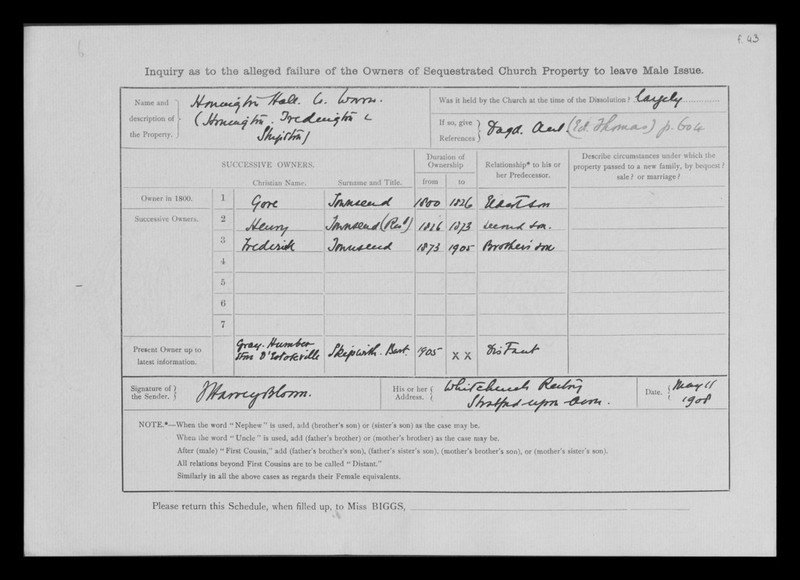 f. 43
Inquiry as to the alleged failure of the Owners of Sequestrated Church Property to leave Male Issue.
Name and description of the Property.
Honington Hall. Co. Warw.
(Honington. Tredington &
Shipston)
Was it held by the Church at the time of the Dissolution? largely
If so, give References
Dugd. Ant. (Ed. Thomas) p. 604
SUCCESSIVE OWNERS.
Christian Name.
Surname and Title.
Duration of Ownership
from
to
Relationship* to his or her Predecessor.
Describe circumstances under which the property passed to a new family, by bequest? sale? or marriage?
Owner in 1800. 1 Gore Townsend 1800 1826 Eldest son
Successive Owners. 2 Henry Townsend (Revd) 1826 1873 second son.
3 Frederick Townsend 1873 1905 Brother's son
4
5
6
7
Present Owner up to latest information.
Gray. Humber
ston D'Estoteville Skipwith. Bart. 1905 x x Distant
Signature of the Sender.
J Harvey Bloom.
His or her Address.
Whitchurch Rectory
Stratford-upon-Avon.
Date.
May 11
1908
NOTE.*—When the word "Nephew" is used, add (brother's son) or (sister's son) as the case may be.
When the word "Uncle" is used, add (father's brother) or (mother's brother) as the case may be.
After (male) "First Cousin," add (father's brother's son), (father's sister's son), (mother's brother's son), or (mother's sister's son).
All relations beyond First Cousins are to be called "Distant."
Similarly in all the above cases as regards their Female equivalents.
Please return this Schedule, when filled up, to Miss BIGGS,